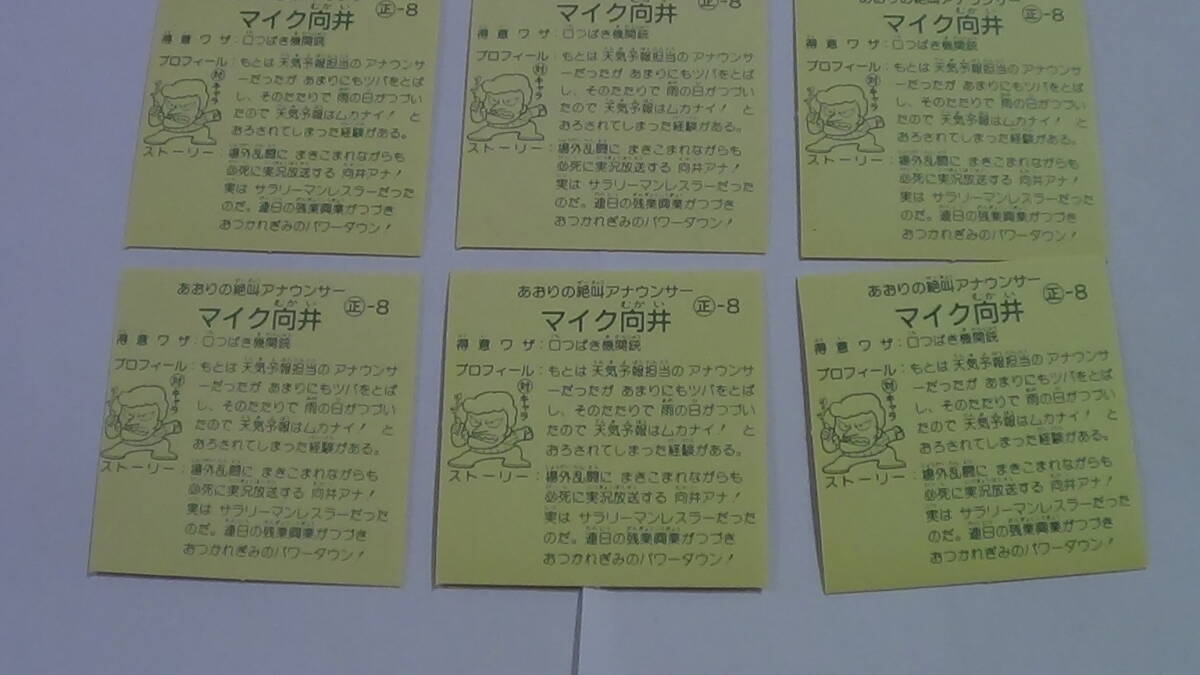 マイク向井 正-8
得意ワザ:口つばき機関銃
プロフィール:もとは 天気予報担当の アナウンサ
ーだったが あまりにもツバをとば
し、そのたたりで 雨の日がつづい
たので 天気予報はムカナイ! と
おろされてしまった経験がある。
対キャラ
ストーリー:場外乱闘に まきこまれながらも
必死に実況放送する 向井アナ!
実は サラリーマンレスラーだった
のだ。連日の残業興業がつづき
おつかれぎみのパワーダウン!
マイク向井 正-8
得意ワザ:口つばき機関銃
プロフィール:もとは 天気予報担当の アナウンサ
ーだったが あまりにもツバをとば
し、そのたたりで 雨の日がつづい
たので 天気予報はムカナイ! と
おろされてしまった経験がある。
対キャラ
ストーリー:場外乱闘に まきこまれながらも
必死に実況放送する 向井アナ!
実は サラリーマンレスラーだった
のだ。連日の残業興業がつづき
おつかれぎみのパワーダウン!
あおりの絶叫アナウンサー
マイク向井 正-8
得意ワザ:口つばき機関銃
プロフィール:もとは 天気予報担当の アナウンサ
ーだったが あまりにもツバをとば
し、そのたたりで 雨の日がつづい
たので 天気予報はムカナイ! と
おろされてしまった経験がある。
対キャラ
ストーリー:場外乱闘に まきこまれながらも
必死に実況放送する 向井アナ!
実は サラリーマンレスラーだった
のだ。連日の残業興業がつづき
おつかれぎみのパワーダウン!
あおりの絶叫アナウンサー
マイク向井 正-8
得意ワザ:口つばき機関銃
プロフィール:もとは 天気予報担当の アナウンサ
ーだったが あまりにもツバをとば
し、そのたたりで 雨の日がつづい
たので 天気予報はムカナイ! と
おろされてしまった経験がある。
対キャラ
ストーリー:場外乱闘に まきこまれながらも
必死に実況放送する 向井アナ!
実は サラリーマンレスラーだった
のだ。連日の残業興業がつづき
おつかれぎみのパワーダウン!
あおりの絶叫アナウンサー
マイク向井 正-8
得意ワザ:口つばき機関銃
プロフィール:もとは 天気予報担当の アナウンサ
ーだったが あまりにもツバをとば
し、そのたたりで 雨の日がつづい
たので 天気予報はムカナイ! と
おろされてしまった経験がある。
対キャラ
ストーリー:場外乱闘に まきこまれながらも
必死に実況放送する 向井アナ!
実は サラリーマンレスラーだった
のだ。連日の残業興業がつづき
おつかれぎみのパワーダウン!
あおりの絶叫アナウンサー
マイク向井 正-8
得意ワザ:口つばき機関銃
プロフィール:もとは 天気予報担当の アナウンサ
ーだったが あまりにもツバをとば
し、そのたたりで 雨の日がつづい
たので 天気予報はムカナイ! と
おろされてしまった経験がある。
対キャラ
ストーリー:場外乱闘に まきこまれながらも
必死に実況放送する 向井アナ!
実は サラリーマンレスラーだった
のだ。連日の残業興業がつづき
おつかれぎみのパワーダウン!